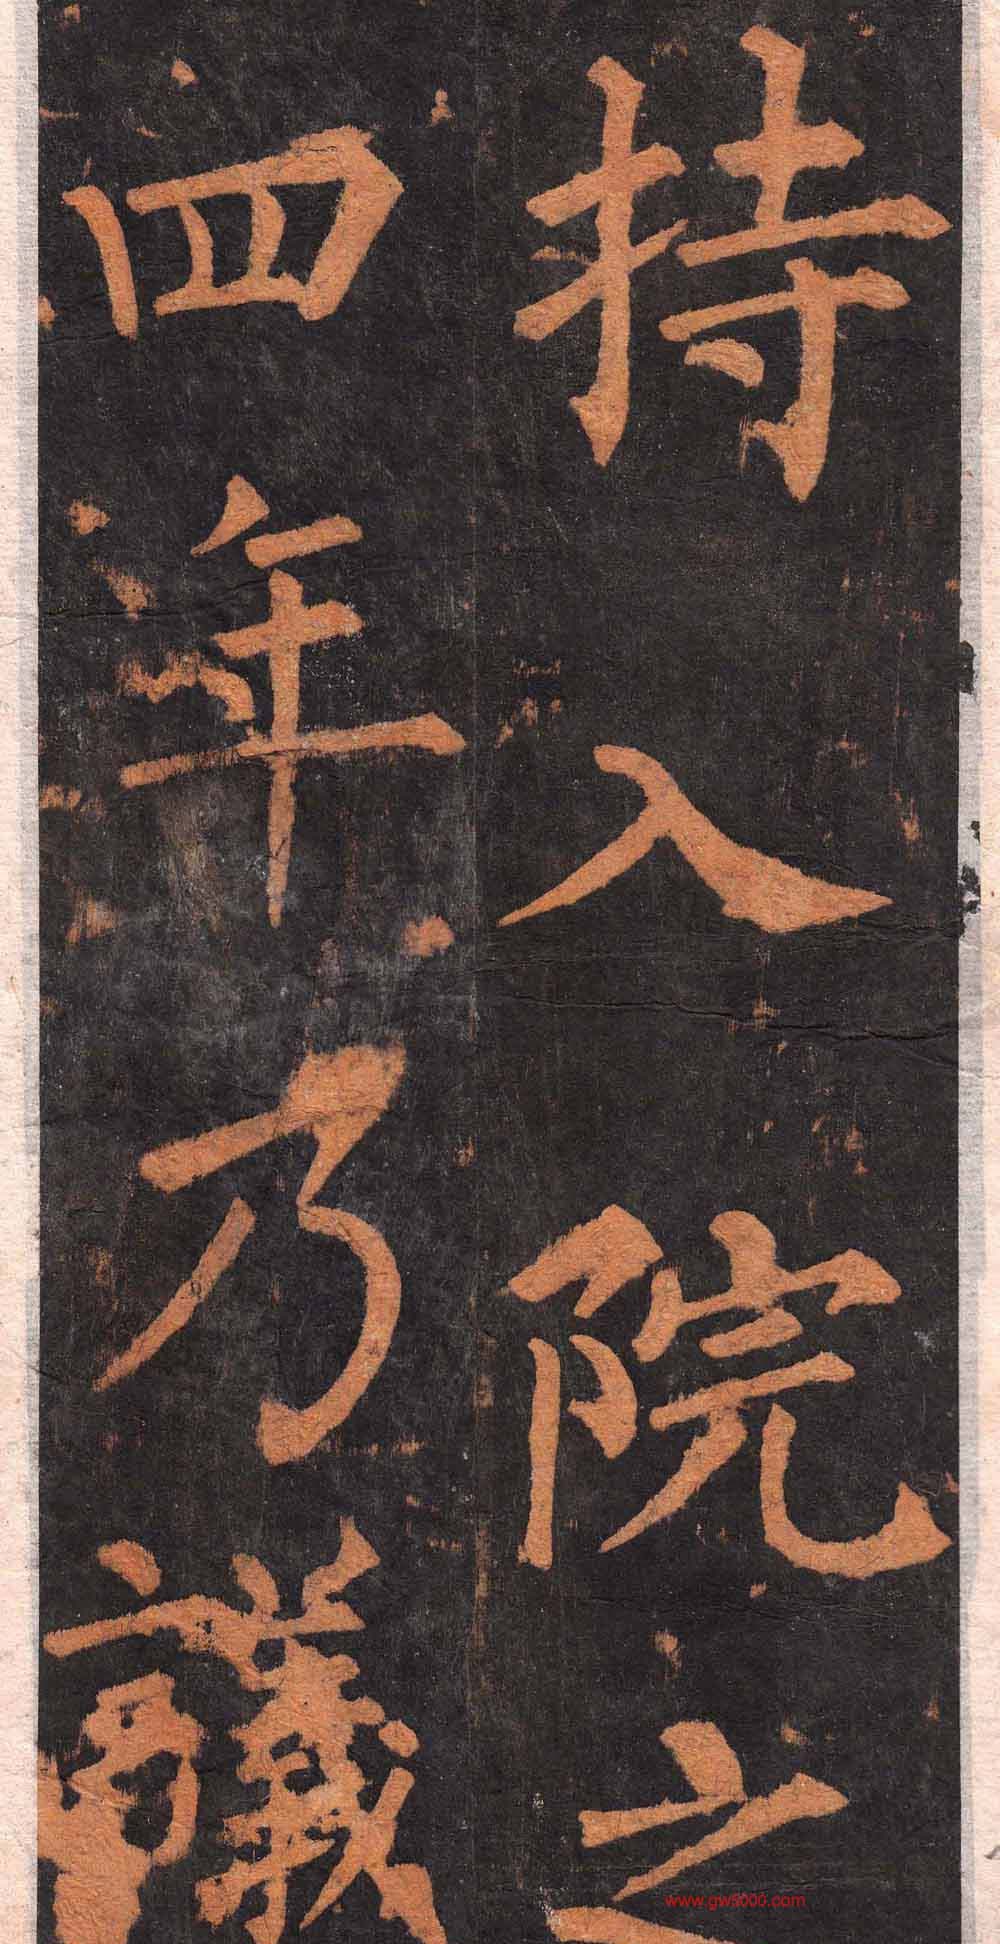 持入院之
四年乃議
www.gw5000.com